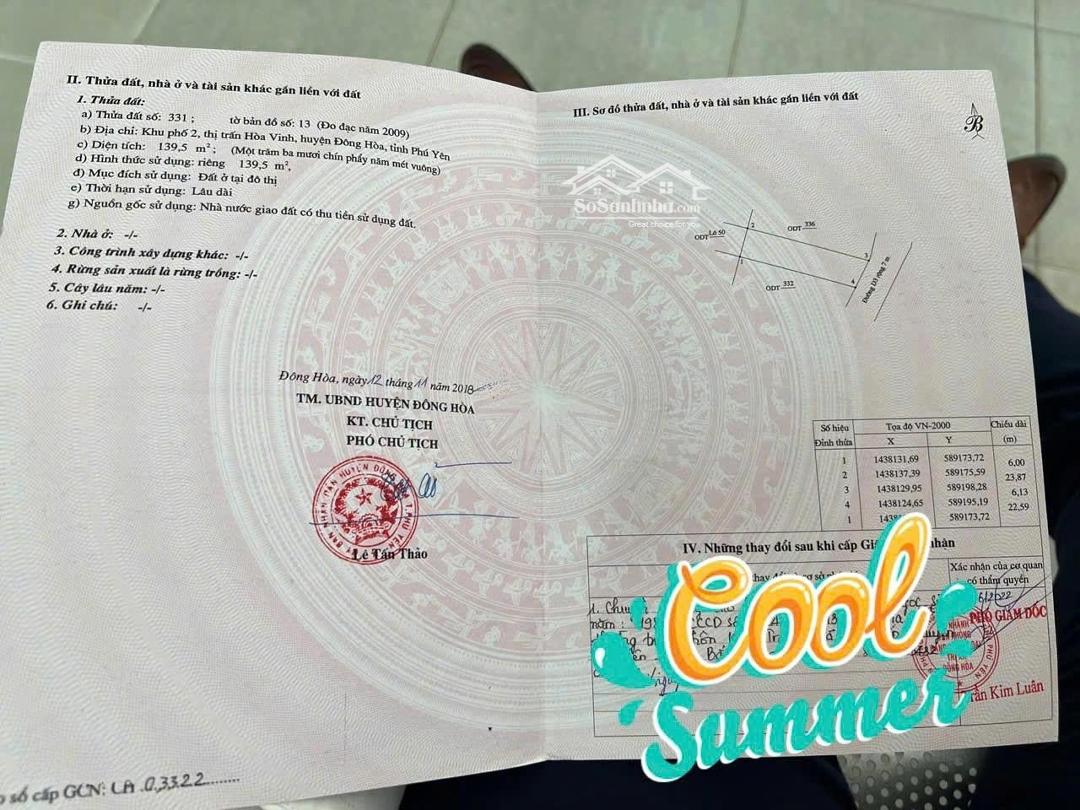 II. Thửa đất, nhà ở và tài sản khác gắn liền với đất
1. Thửa đất:
a) Thửa đất số: 331 ; tờ bản đồ số: 13 (Đo đạc năm 2009)
b) Địa chỉ: Khu phố 2, thị trấn Hòa Vinh, huyện Đông Hòa, tỉnh Phú Yên
c) Diện tích: 139,5 m²; (Một trăm ba mươi chín phẩy năm mét vuông)
d) Hình thức sử dụng: riêng 139,5 m²,
đ) Mục đích sử dụng: Đất ở tại đô thị
e) Thời hạn sử dụng: Lâu dài
g) Nguồn gốc sử dụng: Nhà nước giao đất có thu tiền sử dụng đất.
2. Nhà ở: -/-
3. Công trình xây dựng khác: -/-
4. Rừng sản xuất là rừng trồng: -/-
5. Cây lâu năm: -/-
6. Ghi chú: -/-
Đông Hòa, ngày 12 tháng 11 năm 2018
TM. UBND HUYỆN ĐÔNG HÒA
KT. CHỦ TỊCH
PHÓ CHỦ TỊCH
Lê Tấn Thảo
số cấp GCN: LA 03322
III. Sơ đồ thửa đất, nhà ở và tài sản khác gắn liền với đất
B
SoSanNha.com
Great choice for you
ODT Lô 50
2
ODT 336
3
4
ODT 332
Đường D3 rộng 7 m
Số hiệu Đỉnh thửa Tọa độ VN-2000 Chiều dài (m)
X Y
1 1438131,69 589173,72
6,00
2 1438137,39 589175,59
23,87
3 1438129,95 589198,28
6,13
4 1438124,65 589195,19
22,59
1 589173,72
IV. Những thay đổi sau khi cấp
Xác nhận của cơ quan
có thẩm quyền
PHÓ GIÁM ĐỐC
ĐÔNG HÒA
Trần Kim Luân
Cool
Summer